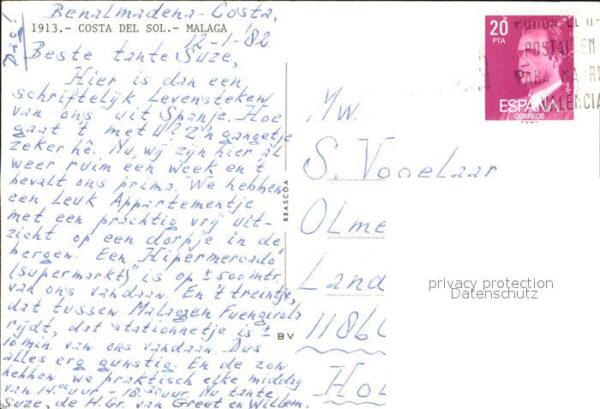 Benalmadena-Costa,
1913.- COSTA DEL SOL.- MALAGA
12-1-'82
Dag!
Beste tante Suze,
Hier is dan een
schriftelijk Levensteken
van ons uit Spanje. Hoe
gaat 't met U? Z'n gangetje
zeker hè. Nu, wij zijn hier al
weer ruim een week en 't
bevalt ons prima. We hebben
een Leuk Appartementje
met een prachtig vrij uit-
zicht op een dorpje in de
bergen. Een "Hipermercado"
(supermarkt) is op ± 500 mtr.
van ons vandaan. En 't treintje,
dat tussen Malaga en Fuengirola
rijdt, dat stationnetje is ±
10 min van ons vandaan. Dus
alles erg gunstig. En de zon
hebben we praktisch elke middag
van 14.00 uur - 18.30 uur. Nu tante
Suze, de H. Gr. van Greet en Willem.
BEASCOA
BV
20
PTA
ESPAÑA
CORREOS
POSTAL EN
PARA MADRI
VALENCIA
Mw.
S. Vogelaar
Olme
Land
1186
Hol
privacy protection
Datenschutz